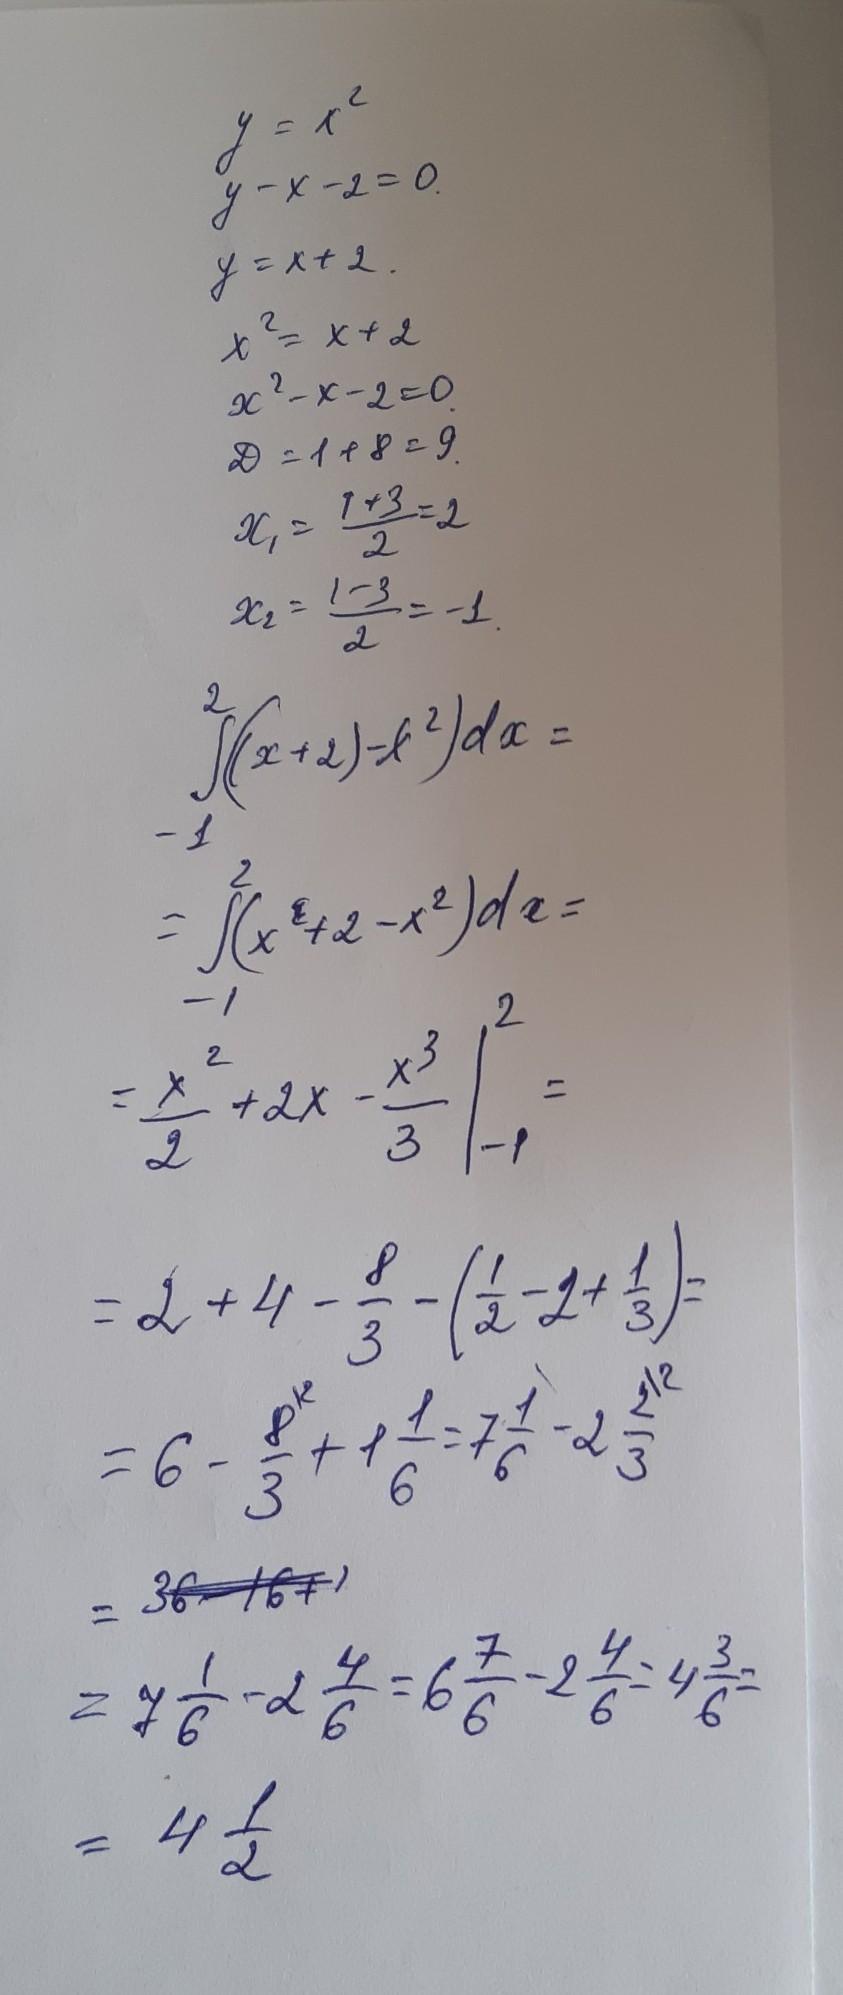 y = x²
y - x - 2 = 0.
y = x + 2.
x² = x + 2
x² - x - 2 = 0.
D = 1 + 8 = 9.
x₁ = (1+3)/2 = 2
x₂ = (1-3)/2 = -1.
∫₋₁² ((x+2) - x²) dx =
= ∫₋₁² (x + 2 - x²) dx =
= x²/2 + 2x - x³/3 |₋₁² =
= 2 + 4 - 8/3 - (1/2 - 2 + 1/3) =
= 6 - 8/3 \2 + 1 1/6 = 7 1/6 - 2 2/3 \2
=
= 7 1/6 - 2 4/6 = 6 7/6 - 2 4/6 = 4 3/6 =
= 4 1/2